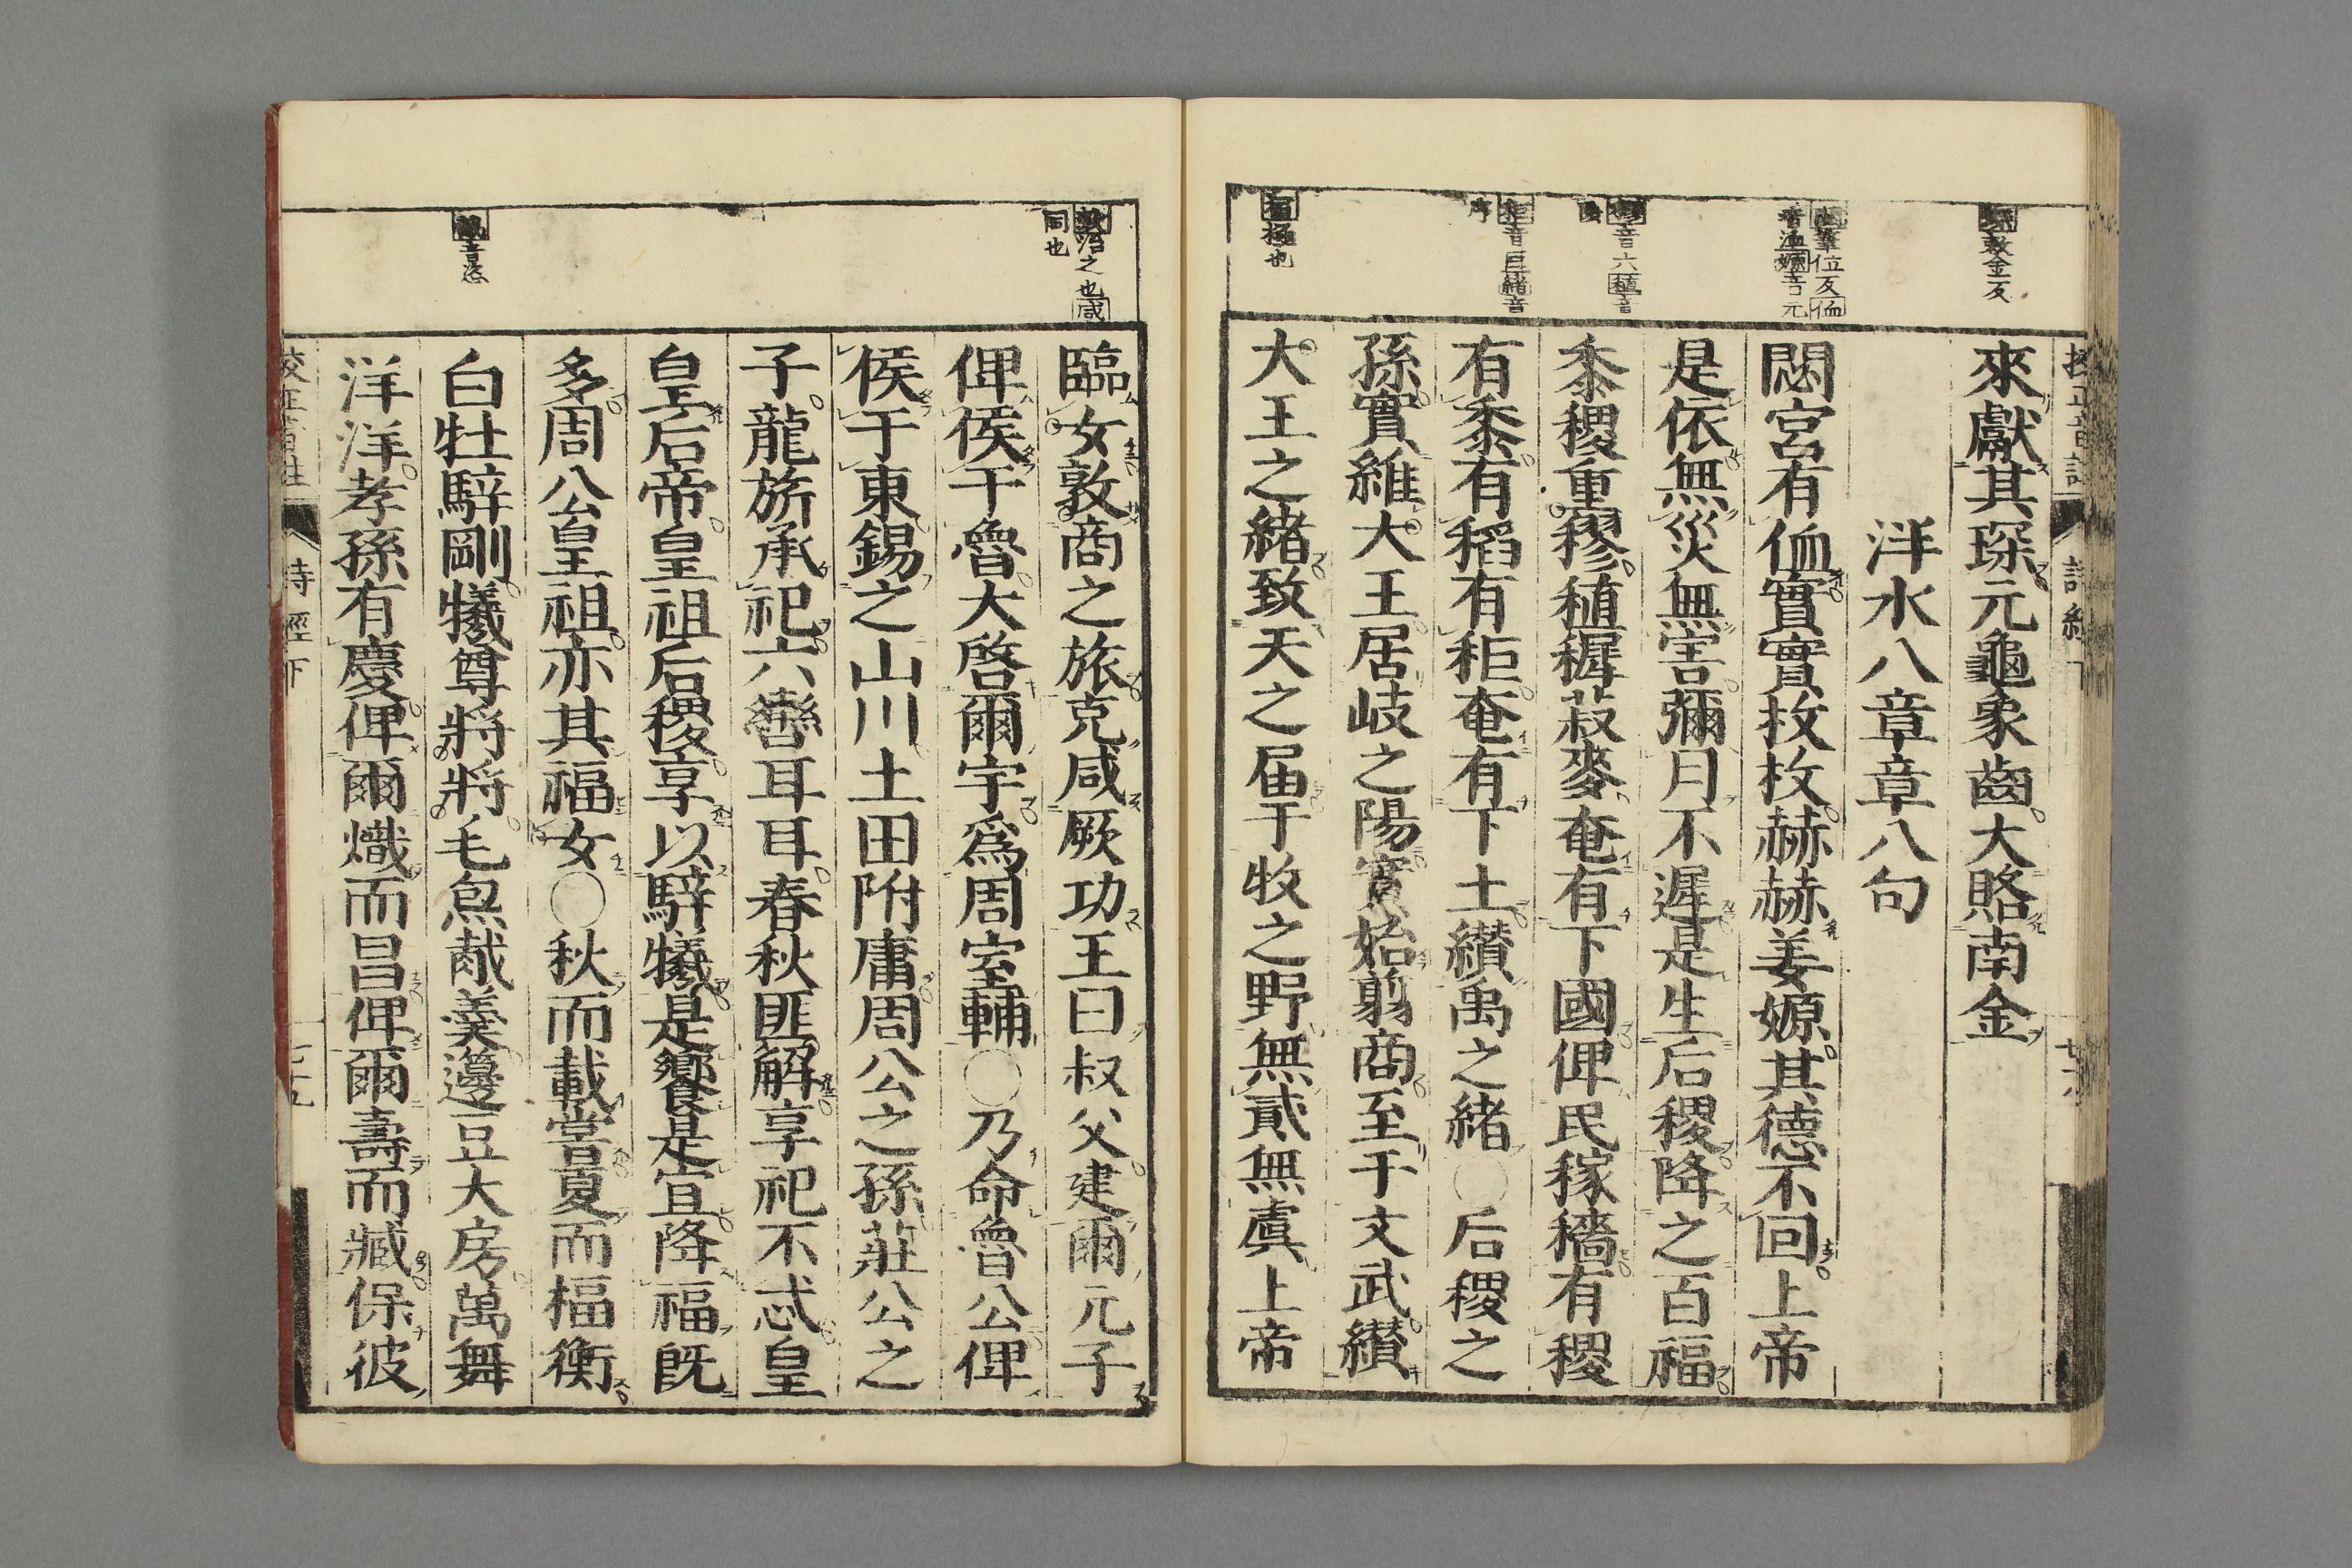 來獻其琛元龜象齒大賂南金
泮水八章章八句
閟宮有侐實實枚枚赫赫姜嫄其德不回上帝
是依無災無害彌月不遲是生后稷降之百福
黍稷重穋稙穉菽麥奄有下國俾民稼穡有稷
有黍有稻有秬奄有下土纘禹之緒○后稷之
孫實維大王居岐之陽實始剪商至于文武纘
大王之緒致天之屆于牧之野無貳無虞上帝
臨女敦商之旅克咸厥功王曰叔父建爾元子
俾侯于魯大啓爾宇爲周室輔○乃命魯公俾
侯于東錫之山川土田附庸周公之孫莊公之
子龍旂承祀六轡耳耳春秋匪解享祀不忒皇
皇后帝皇祖后稷享以騂犧是饗是宜降福既
多周公皇祖亦其福女○秋而載嘗夏而楅衡
白牡騂剛犧尊將將毛炰胾羹籩豆大房萬舞
洋洋孝孫有慶俾爾熾而昌俾爾壽而臧保彼
敕金反
筆位反侐
音洫嫄音元
音六稙音
音巨緒音
序
極也
治之也咸
同也
詩經下